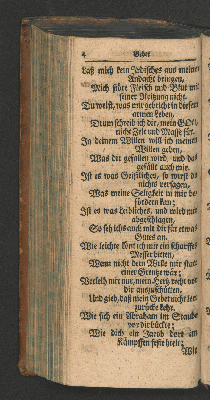 4 Gebet
Laß mich kein Irdisches aus meiner
Andacht bringen,
Mich störe Fleisch und Blut mit
seiner Reitzung nicht.
Du weist, was mir gebricht in diesem
armen Leben,
Drum schreib ich dir, mein GOtt,
nicht Ziele und Masse für.
In deinem Willen will ich meinen
Willen geben,
Was dir gefallen wird, und das
gefällt auch mir.
Ist es was Geistliches, so wirst du
nichts versagen,
Was meine Seligkeit in mir be-
fördern kan;
Ist es was Leibliches, und wird mir
abgeschlagen,
So seh ichs auch mit dir für etwas
Gutes an.
Wie leichte könt ich mir ein scharffes
Messer bitten,
Wenn nicht dein Wille mir statt
einer Grentze wär;
Verleih mir nur, mein Hertz recht vor
dir auszuschütten,
Und gieb, daß mein Gebet nicht leer
zurücke kehr.
Wie sich ein Abraham im Staube
vor dir bückte;
Wie dich ein Jacob dort im
Kämpffen feste hielt;